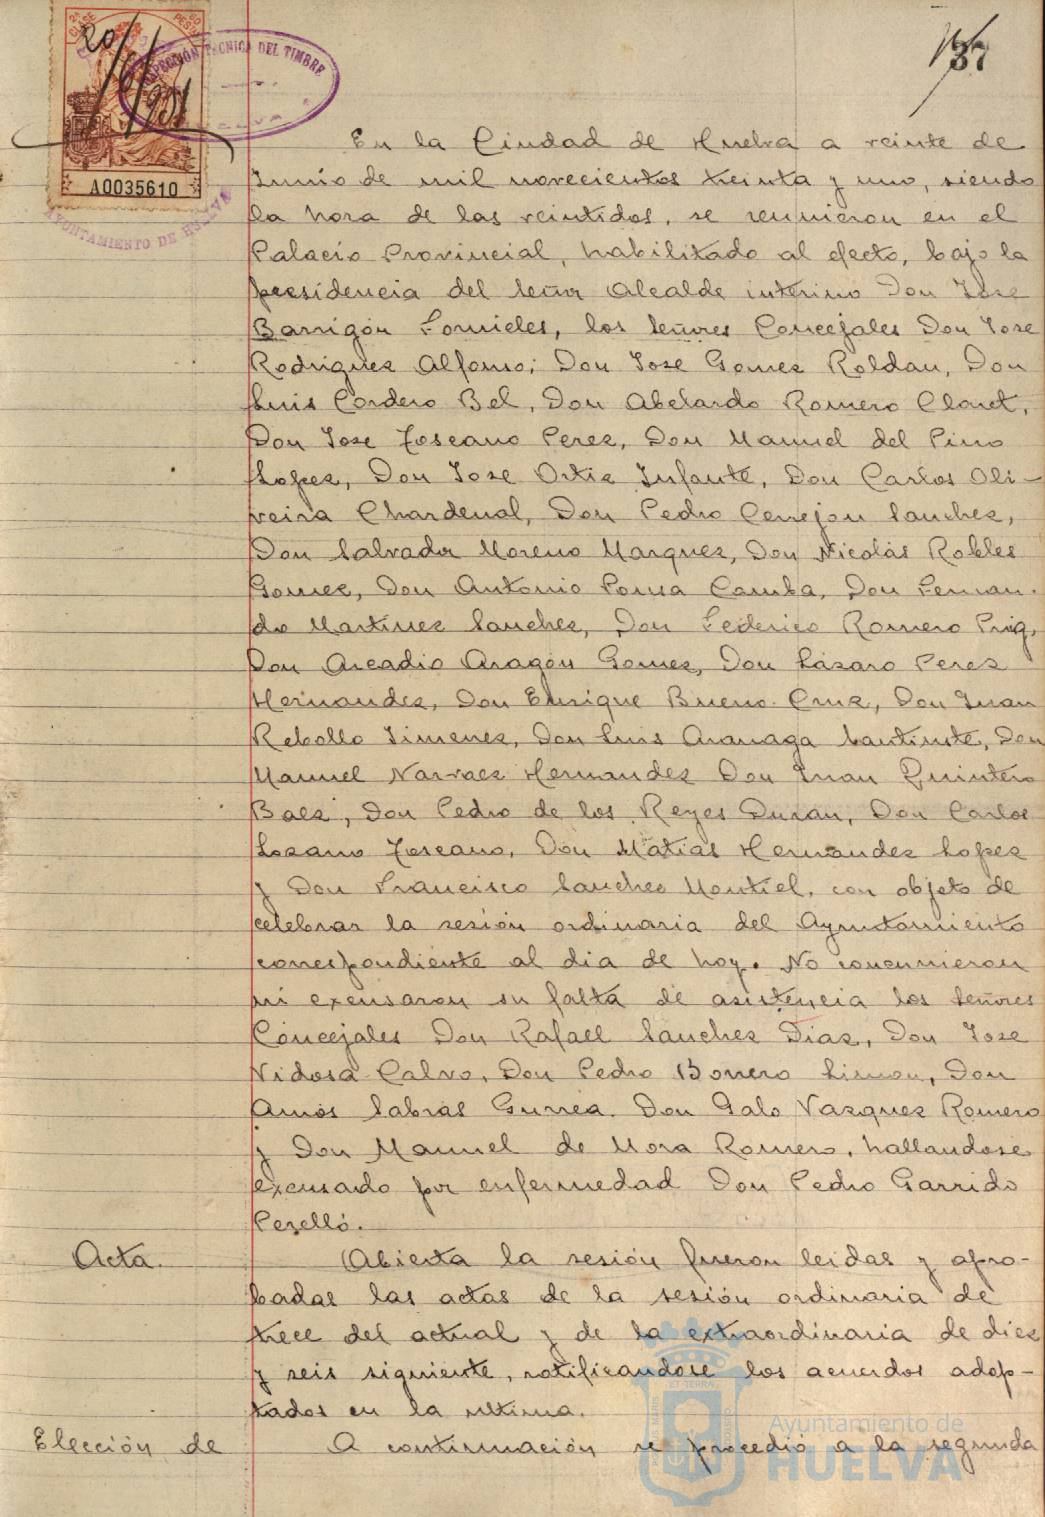 2ª CLASE
60 PESETAS
20/6/931
INSPECCIÓN TECNICA DEL TIMBRE
HUELVA
A0035610
AYUNTAMIENTO DE HUELVA
137
En la Ciudad de Huelva a veinte de
Junio de mil novecientos treinta y uno, siendo
la hora de las veintidos, se reunieron en el
Palacio Provincial, habilitado al efecto, bajo la
presidencia del Señor Alcalde interino Don Jose
Barrigón Fornieles, los Señores Concejales Don Jose
Rodriguez Alfonso; Don Jose Gomez Roldan, Don
Luis Cordero Bel, Don Abelardo Romero Claret,
Don Jose Toscano Perez, Don Manuel del Pino
Lopez, Don Jose Ortiz Infante, Don Carlos Oli-
veira Chardenal, Don Pedro Cerrejon Sanchez,
Don Salvador Moreno Marquez, Don Nicolás Robles
Gomez, Don Antonio Pousa Camba, Don Fernan-
do Martinez Sanchez, Don Federico Romero Puig,
Don Arcadio Aragón Gomez, Don Lázaro Perez
Hernandez, Don Enrique Bueno Cruz, Don Juan
Rebollo Jimenez, Don Luis Aranaga Santiuste, Don
Manuel Narvaez Hernandez Don Juan Quintero
Baez, Don Pedro de los Reyes Duran, Don Carlos
Lozano Toscano, Don Matias Hernandez Lopez
y Don Francisco Sanchez Montiel, con objeto de
celebrar la sesión ordinaria del Ayuntamiento
correspondiente al dia de hoy. No concurrieron
ni excusaron su falta de asistencia los Señores
Concejales Don Rafael Sanchez Diaz, Don Jose
Vidosa Calvo, Don Pedro Borrero Limon, Don
Amós Sabrás Gurrea. Don Galo Vazquez Romero
y Don Manuel de Mora Romero, hallandose
excusado por enfermedad Don Pedro Garrido
Perelló.
Acta.
Abierta la sesión fueron leidas y apro-
badas las actas de la sesión ordinaria de
trece del actual y de la extraordinaria de diez
y seis siguiente, ratificandose los acuerdos adop-
tados en la ultima.
Elección de
A continuación se procedió a la segunda
Ayuntamiento de
HUELVA